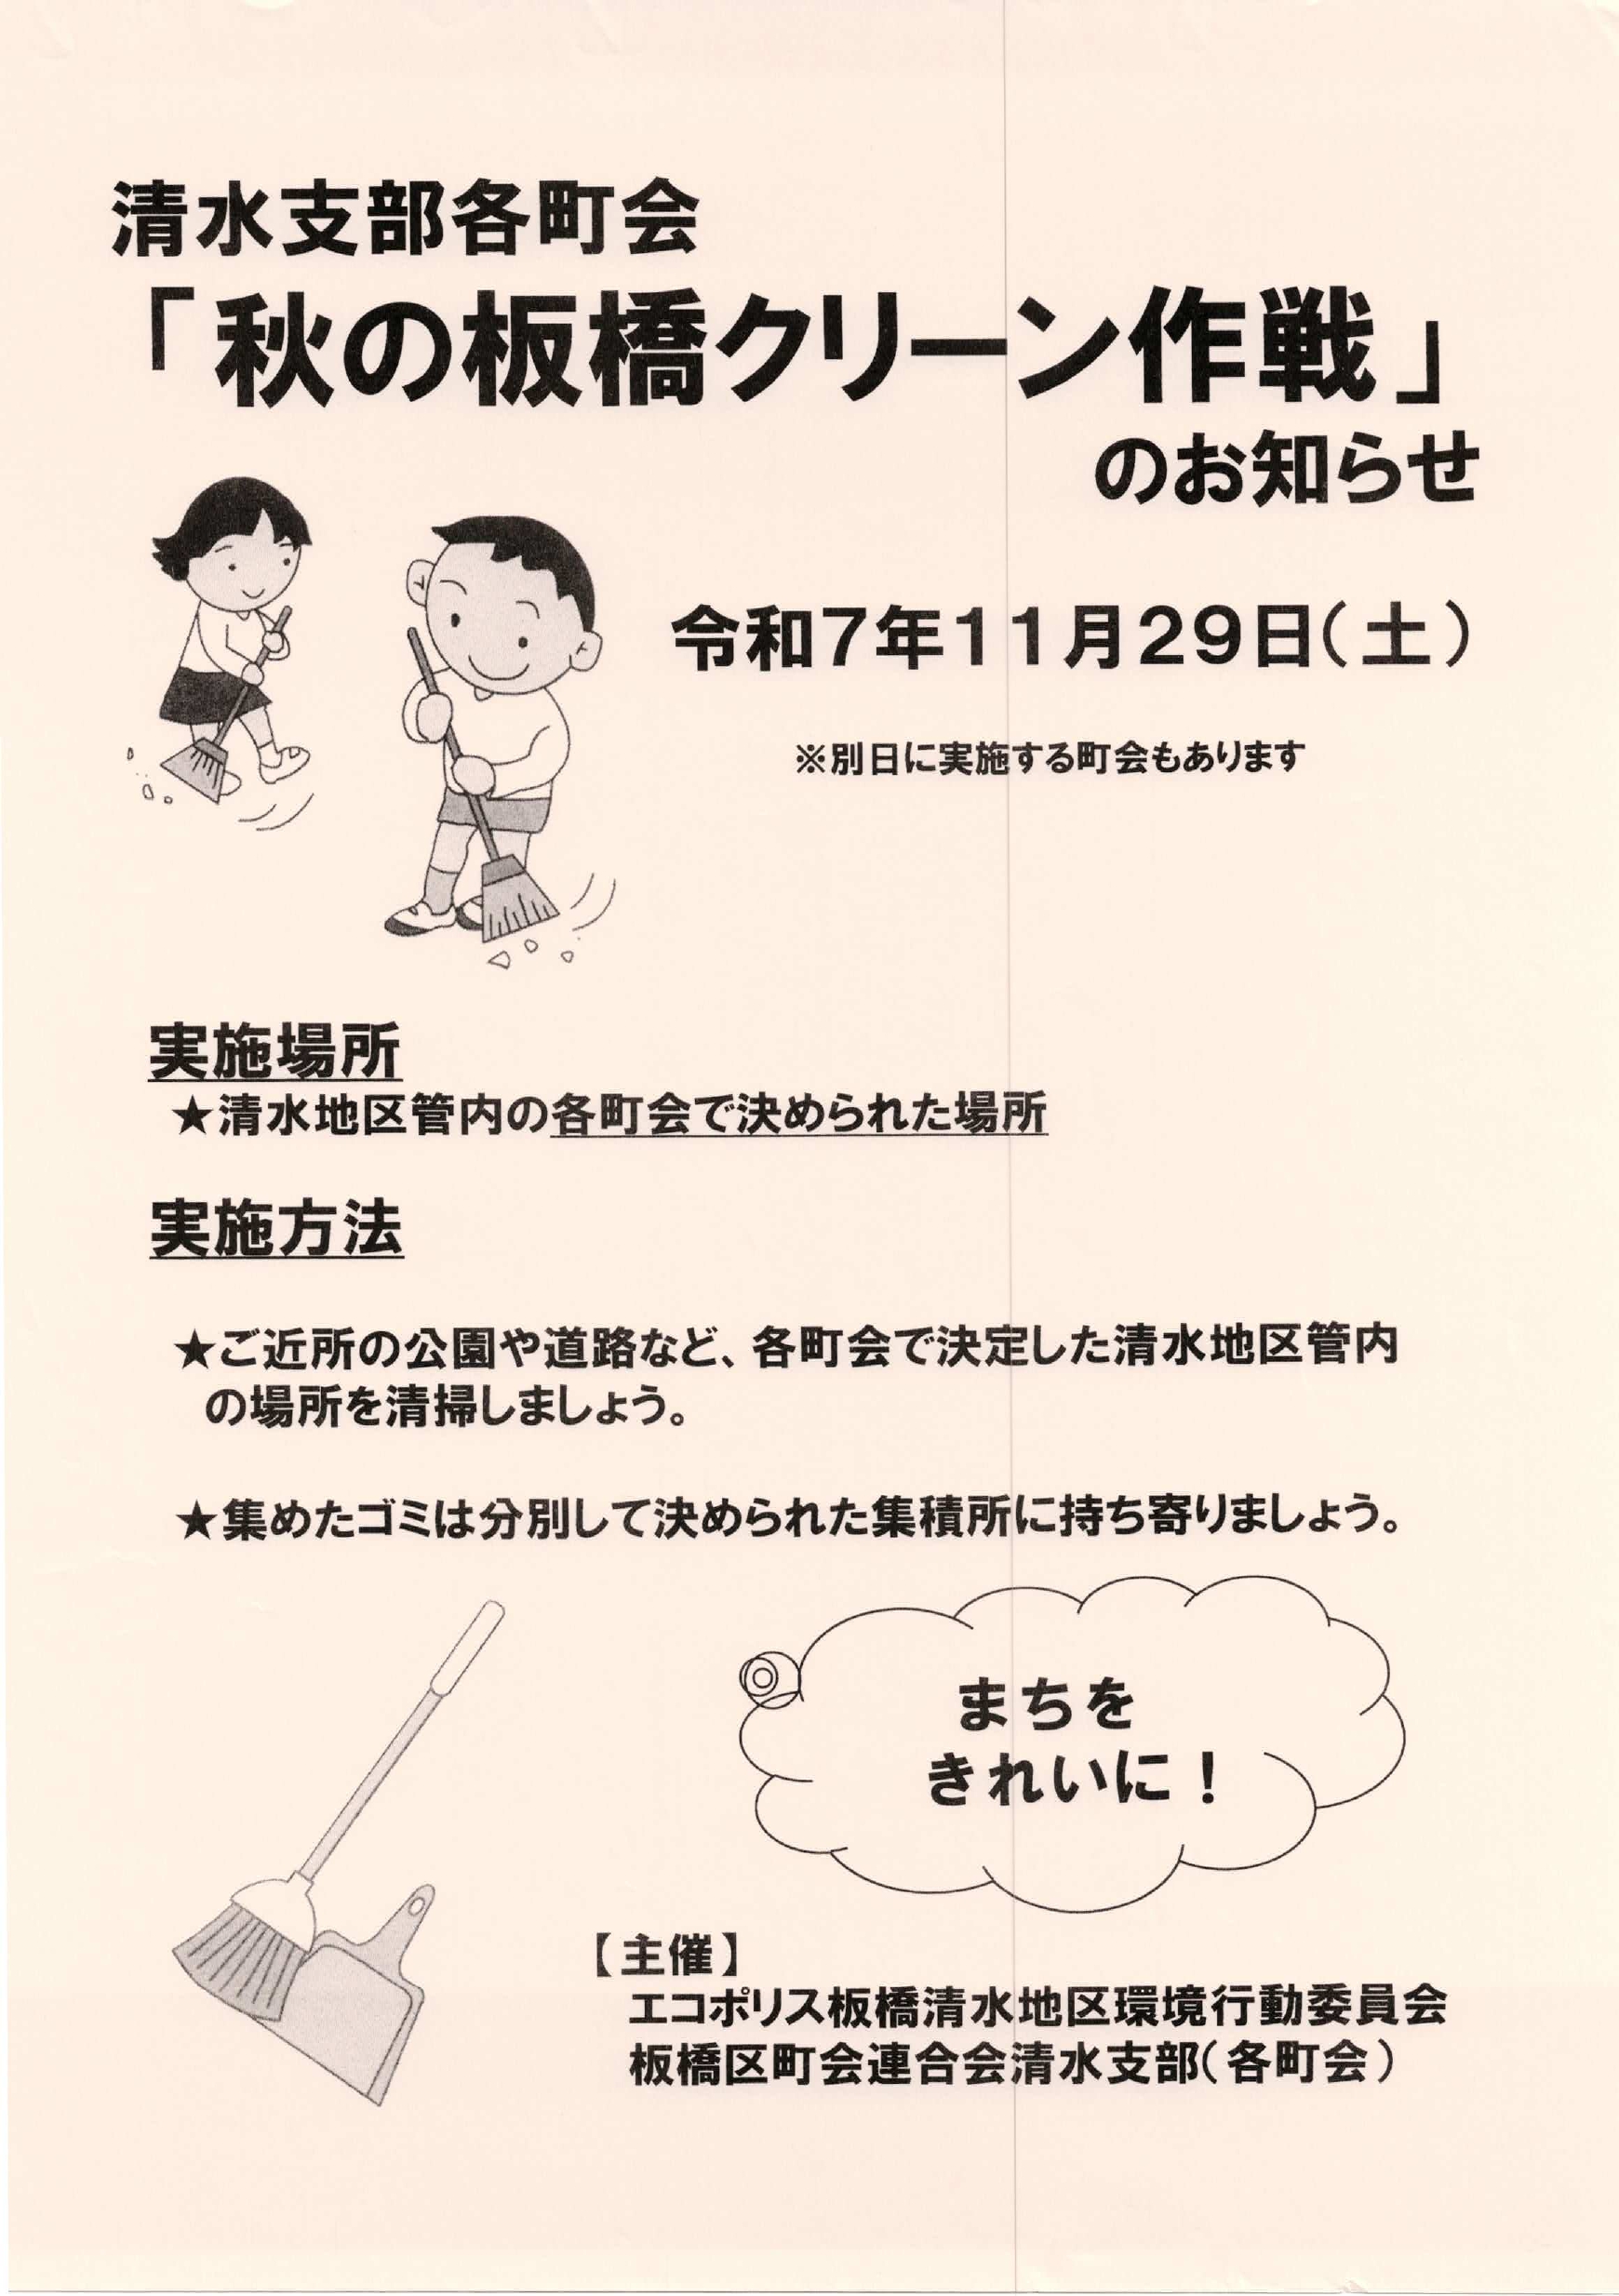 清水支部各町会
「秋の板橋クリーン作戦」
のお知らせ
令和7年11月29日(土)
※別日に実施する町会もあります
実施場所
★清水地区管内の各町会で決められた場所
実施方法
★ご近所の公園や道路など、各町会で決定した清水地区管内
の場所を清掃しましょう。
★集めたゴミは分別して決められた集積所に持ち寄りましょう。
まちを
きれいに！
【主催】
エコポリス板橋清水地区環境行動委員会
板橋区町会連合会清水支部(各町会)